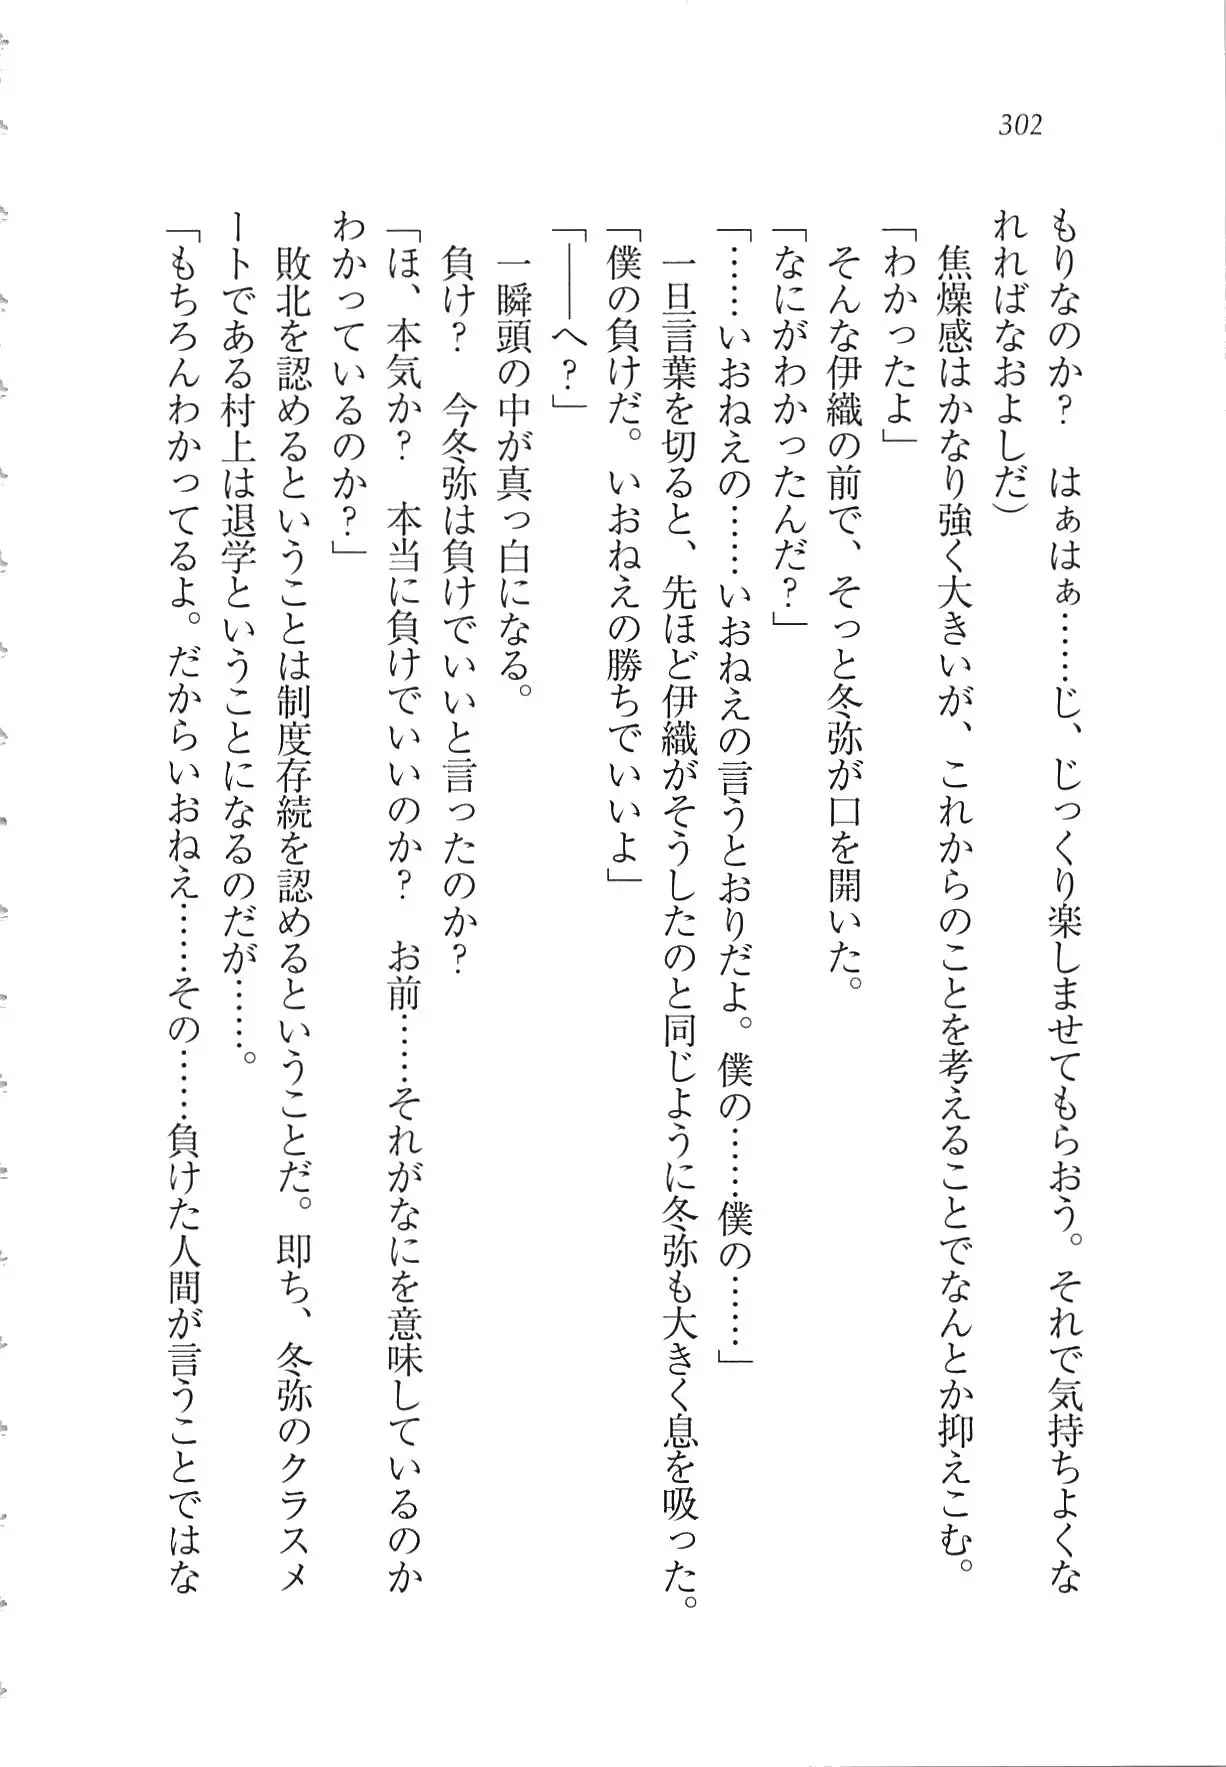 302
もりなのか？　はぁはぁ……じ、じっくり楽しませてもらおう。それで気持ちよくな
れればなおよしだ）
　焦燥感はかなり強く大きいが、これからのことを考えることでなんとか抑えこむ。
「わかったよ」
　そんな伊織の前で、そっと冬弥が口を開いた。
「なにがわかったんだ？」
「……いおねえの……いおねえの言うとおりだよ。僕の……僕の……」
　一旦言葉を切ると、先ほど伊織がそうしたのと同じように冬弥も大きく息を吸った。
「僕の負けだ。いおねえの勝ちでいいよ」
「――へ？」
　一瞬頭の中が真っ白になる。
　負け？　今冬弥は負けでいいと言ったのか？
「ほ、本気か？　本当に負けでいいのか？　お前……それがなにを意味しているのか
わかっているのか？」
　敗北を認めるということは制度存続を認めるということだ。即ち、冬弥のクラスメ
ートである村上は退学ということになるのだが……。
「もちろんわかってるよ。だからいおねえ……その……負けた人間が言うことではな